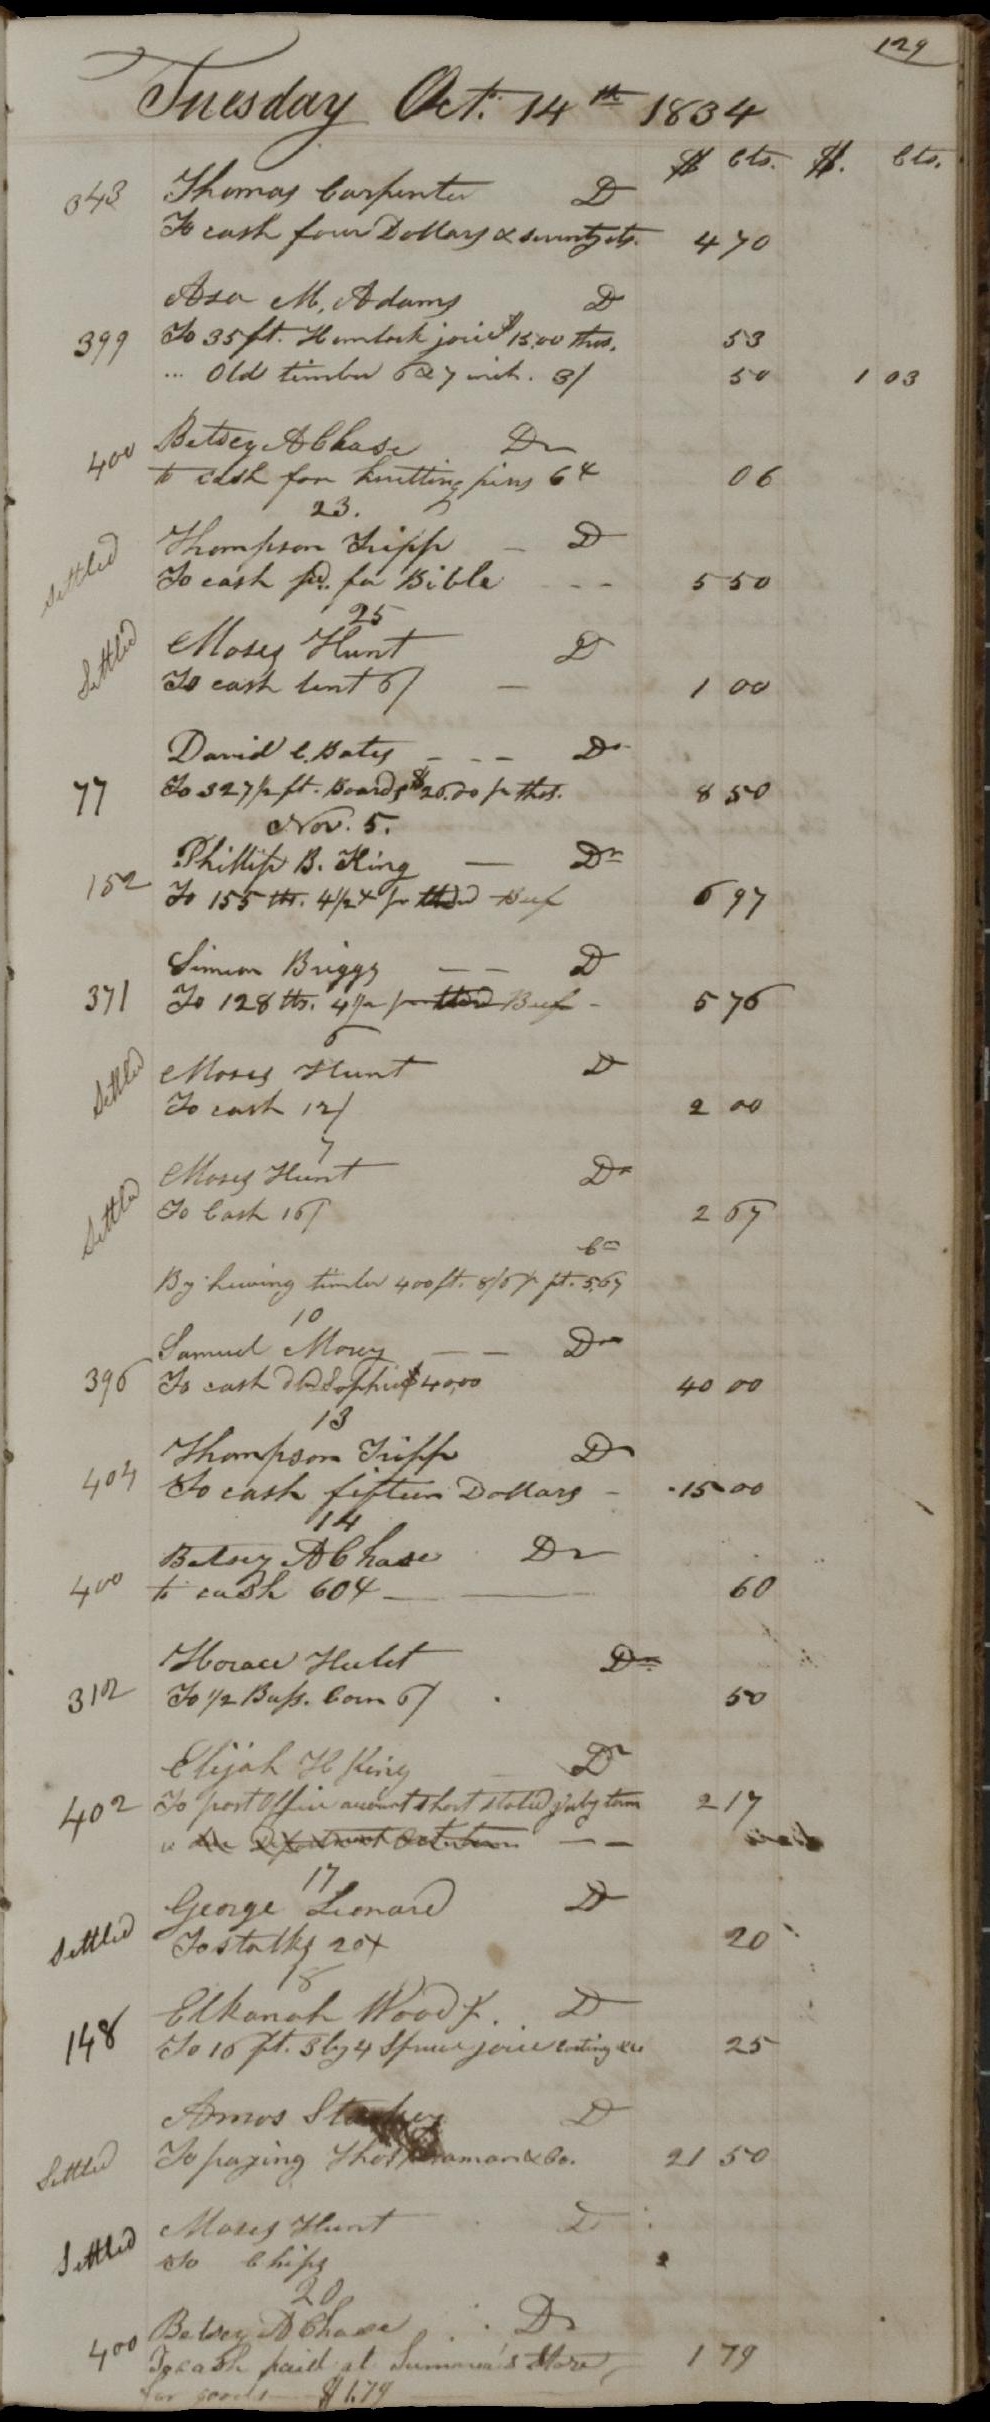 129
Tuesday Oct. 14th 1834
$ Cts. $. Cts.
343 Thomas Carpenter D
To cash four Dollars & seventy cts. 4 70
Asa M. Adams D
399 To 35 ft. Hemlock joice $15,00 thos. 53
... Old timber 6 & 7 inch. 3/ 50 1 03
400 Betsey A Chase Dr
to cash for knitting pins 6 c 06
23.
Settled Thompson Tripp - D
To cash pd. for Bible - - 5 50
25
Settled Moses Hunt D
To cash lent 6/ - 1 00
David C. Bates - - - Dr
77 To 327 1/2 ft. Boards $26.00 pr thos. 8 50
Nov. 5.
152 Phillip B. King - Dr
To 155 lbs. 4 1/2 c pr Beef 6 97
Simeon Briggs - - D
371 To 128 lbs. 4 1/2 pr Beef - 5 76
6
Settled Moses Hunt D
To cash 12/ 2 00
7
Settled Moses Hunt Dr
To Cash 16/ 2 67
Cr
By hewing timber 400 ft. 8/6 pr ft. 5,67
10
Samuel Morey - - Dr
396 To cash Sophia $40,00 40 00
13
404 Thompson Tripp Dr
To cash fifteen Dollars - 15 00
14
400 Betsey A Chase Dr
to cash 60 c 60
Horace Hulet Dr
312 To 1/2 Bush. Corn 6/ 50
Elijah H King Dr
402 To post Office account short stated July term 2 17
17
George Leonard D
Settled To stalks 20 c 20
18
148 Elkanah Wood Jr. D
To 16 ft. 3 by 4 Spruce joice 25
Amos D
Settled To paying Thos & Co. 21 50
Moses Hunt D
Settled To Chips
20
400 Betsey A Chase Dr
To cash paid at Store 1 79
for goods $1.79